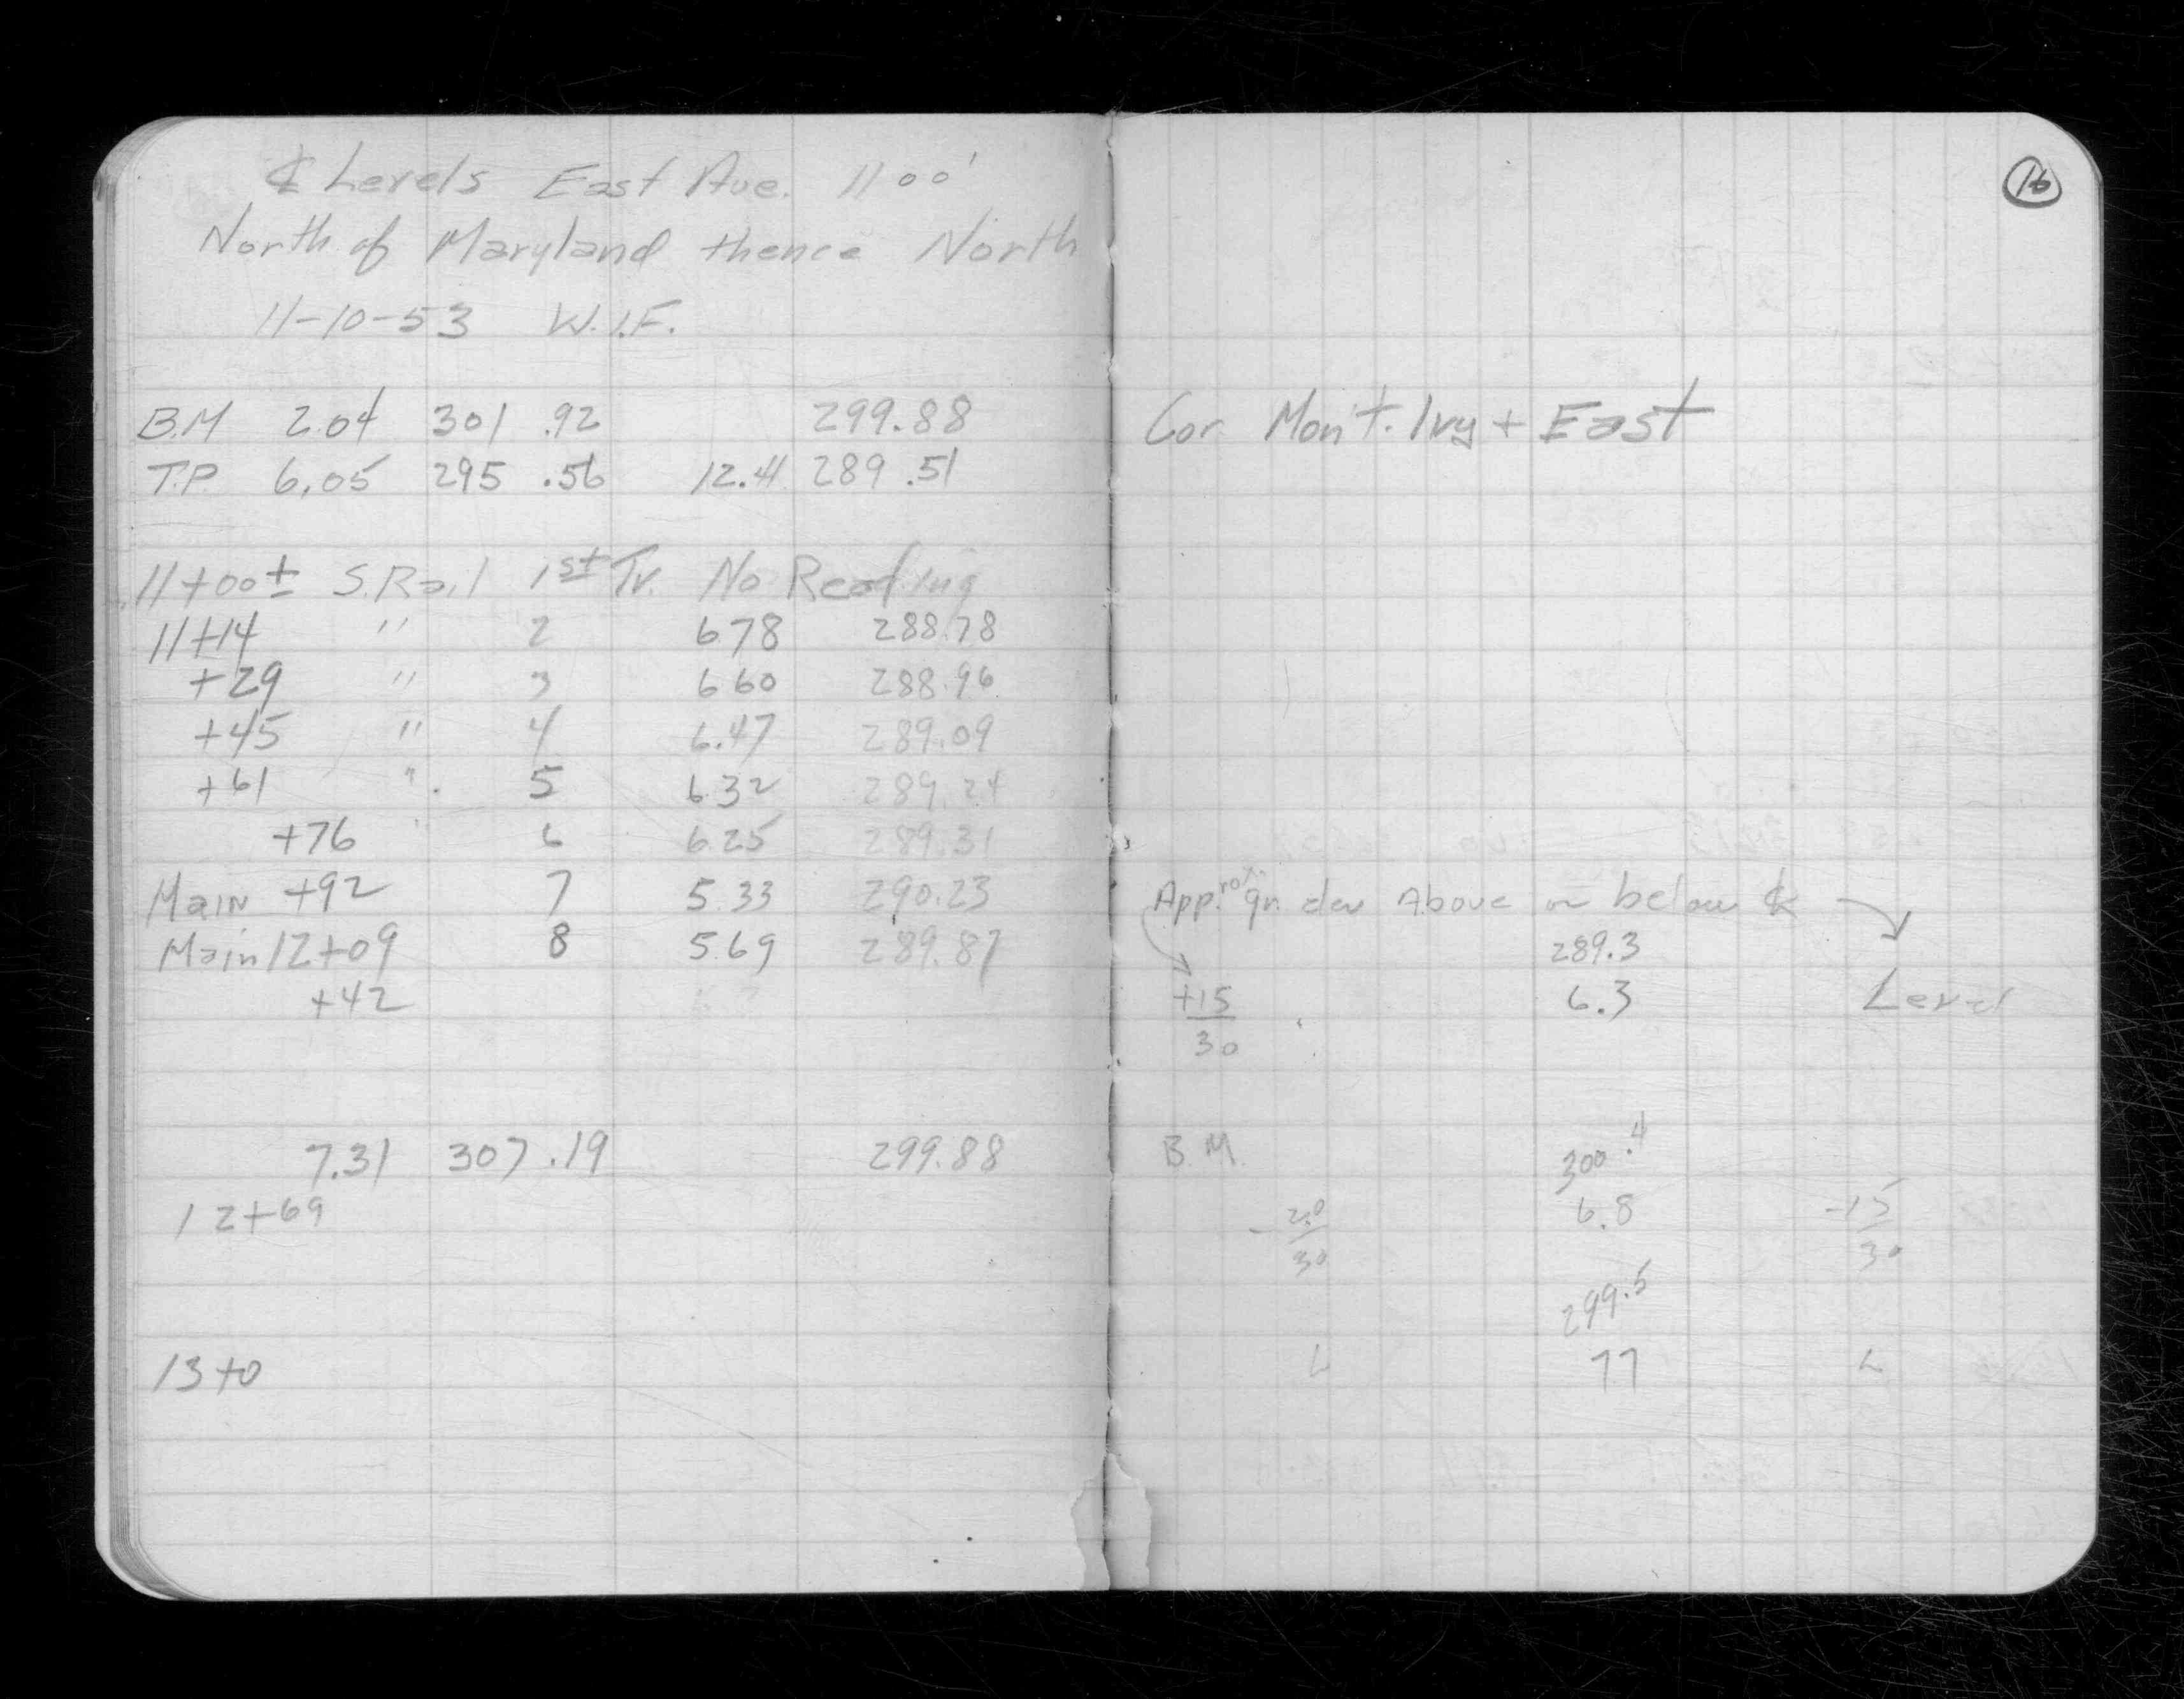 ℄ Levels East Ave. 1100'
North of Maryland thence North
11-10-53 W.I.F.
B.M 2.04 301 .92 299.88
T.P. 6.05 295 .56 12.41 289 .51
11+00± S.Rail 1st Tr. No Reading
11+14 " 2 6.78 288.78
+29 " 3 6.60 288.96
+45 " 4 6.47 289.09
+61 " 5 6.32 289.24
+76 6 6.25 289.31
Main +92 7 5.33 290.23
Main 12+09 8 5.69 289.87
+42
7.31 307 .19 299.88
12+69
13+0
16
Cor. Mon't. Ivy + East
Approx. gn. elev Above or below ℄
289.3
+15 6.3 Level
30
B.M. 300.4
-2.0 6.8 -15
30 30
299.5
L 77 L